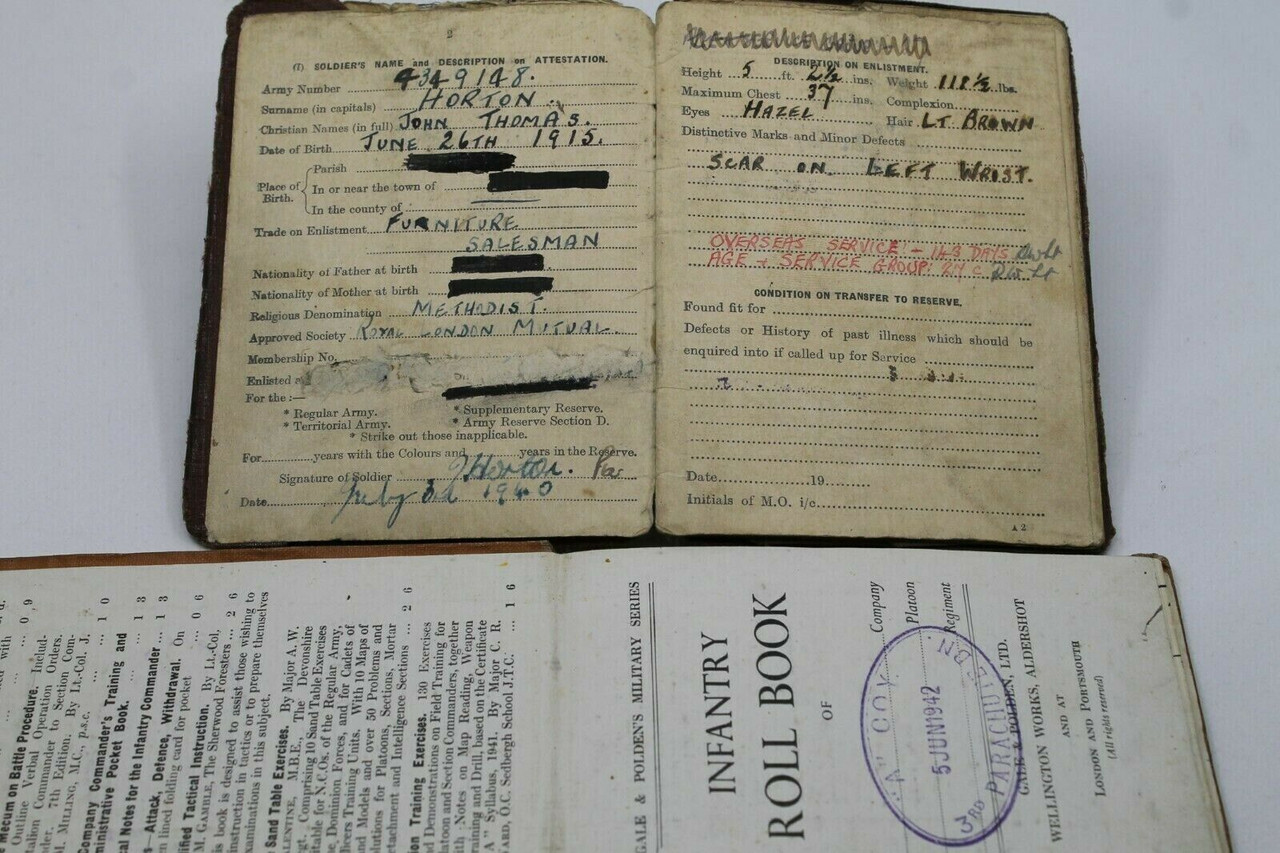 2
(I) SOLDIER'S NAME and DESCRIPTION on ATTESTATION.
Army Number 4349148.
Surname (in capitals) HORTON.
Christian Names (in full) JOHN THOMAS.
Date of Birth JUNE 26TH 1915.
Place of Birth.
Parish
In or near the town of
In the county of
Trade on Enlistment FURNITURE
SALESMAN
Nationality of Father at birth
Nationality of Mother at birth
Religious Denomination METHODIST.
Approved Society ROYAL LONDON MUTUAL.
Membership No.
Enlisted
For the :—
* Regular Army. * Supplementary Reserve.
* Territorial Army. * Army Reserve Section D.
* Strike out those inapplicable.
For years with the Colours and years in the Reserve.
Signature of Soldier J Horton.
Date 3rd 1940
DESCRIPTION ON ENLISTMENT.
Height 5 ft. 2½ ins. Weight 118½ lbs.
Maximum Chest 37 ins. Complexion
Eyes HAZEL Hair LT BROWN
Distinctive Marks and Minor Defects
SCAR ON LEFT WRIST.
OVERSEAS SERVICE - 143 DAYS
AGE + SERVICE GROUP:
CONDITION ON TRANSFER TO RESERVE.
Found fit for
Defects or History of past illness which should be
enquired into if called up for Service
Date 19
Initials of M.O. i/c
A 2
Mecum on Battle Procedure.
Outline Verbal Operation Orders. Includ-
Commander to Section Orders,
7th Edition. By Lt.-Col. J.
MILING, M.C., p.s.c. ... 1 0
Company Commander's Training and
Administrative Pocket Book. ... 1 3
Notes for the Infantry Commander ... 1 3
— Attack, Defence, Withdrawal. On
lined folding card for pocket ... 0 6
Tactical Instruction. By Lt.-Col.
M. GAMBLE, The Sherwood Foresters ... 2 6
book is designed to assist those wishing to
instruction in tactics or to prepare themselves
examinations in this subject.
Sand Table Exercises. By Major A. W.
VALENTINE, M.B.E., The Devonshire
Regt. Comprising 10 Sand Table Exercises
suitable for N.C.Os. of the Regular Army,
Dominion Forces, and for Cadets of
Officers Training Units. With 10 Maps of
and Models and over 50 Problems and
Solutions for Platoons, Sections, Mortar
Detachment and Intelligence Sections ... 2 6
Training Exercises. 130 Exercises
and Demonstrations on Field Training for
Platoon and Section Commanders, together
with Notes on Map Reading, Weapon
Training and Drill, based on the Certificate
"A" Syllabus, 1941. By Major C. R.
O.C. Sedbergh School J.T.C. ... 1 6
GALE & POLDEN'S MILITARY SERIES
INFANTRY
ROLL BOOK
OF
Company
Platoon
Regiment
"A" COY.
5 JUN 1942
3RD PARACHUTE BN.
GALE & POLDEN, LTD.
WELLINGTON WORKS, ALDERSHOT
AND AT
LONDON AND PORTSMOUTH
(All rights reserved)